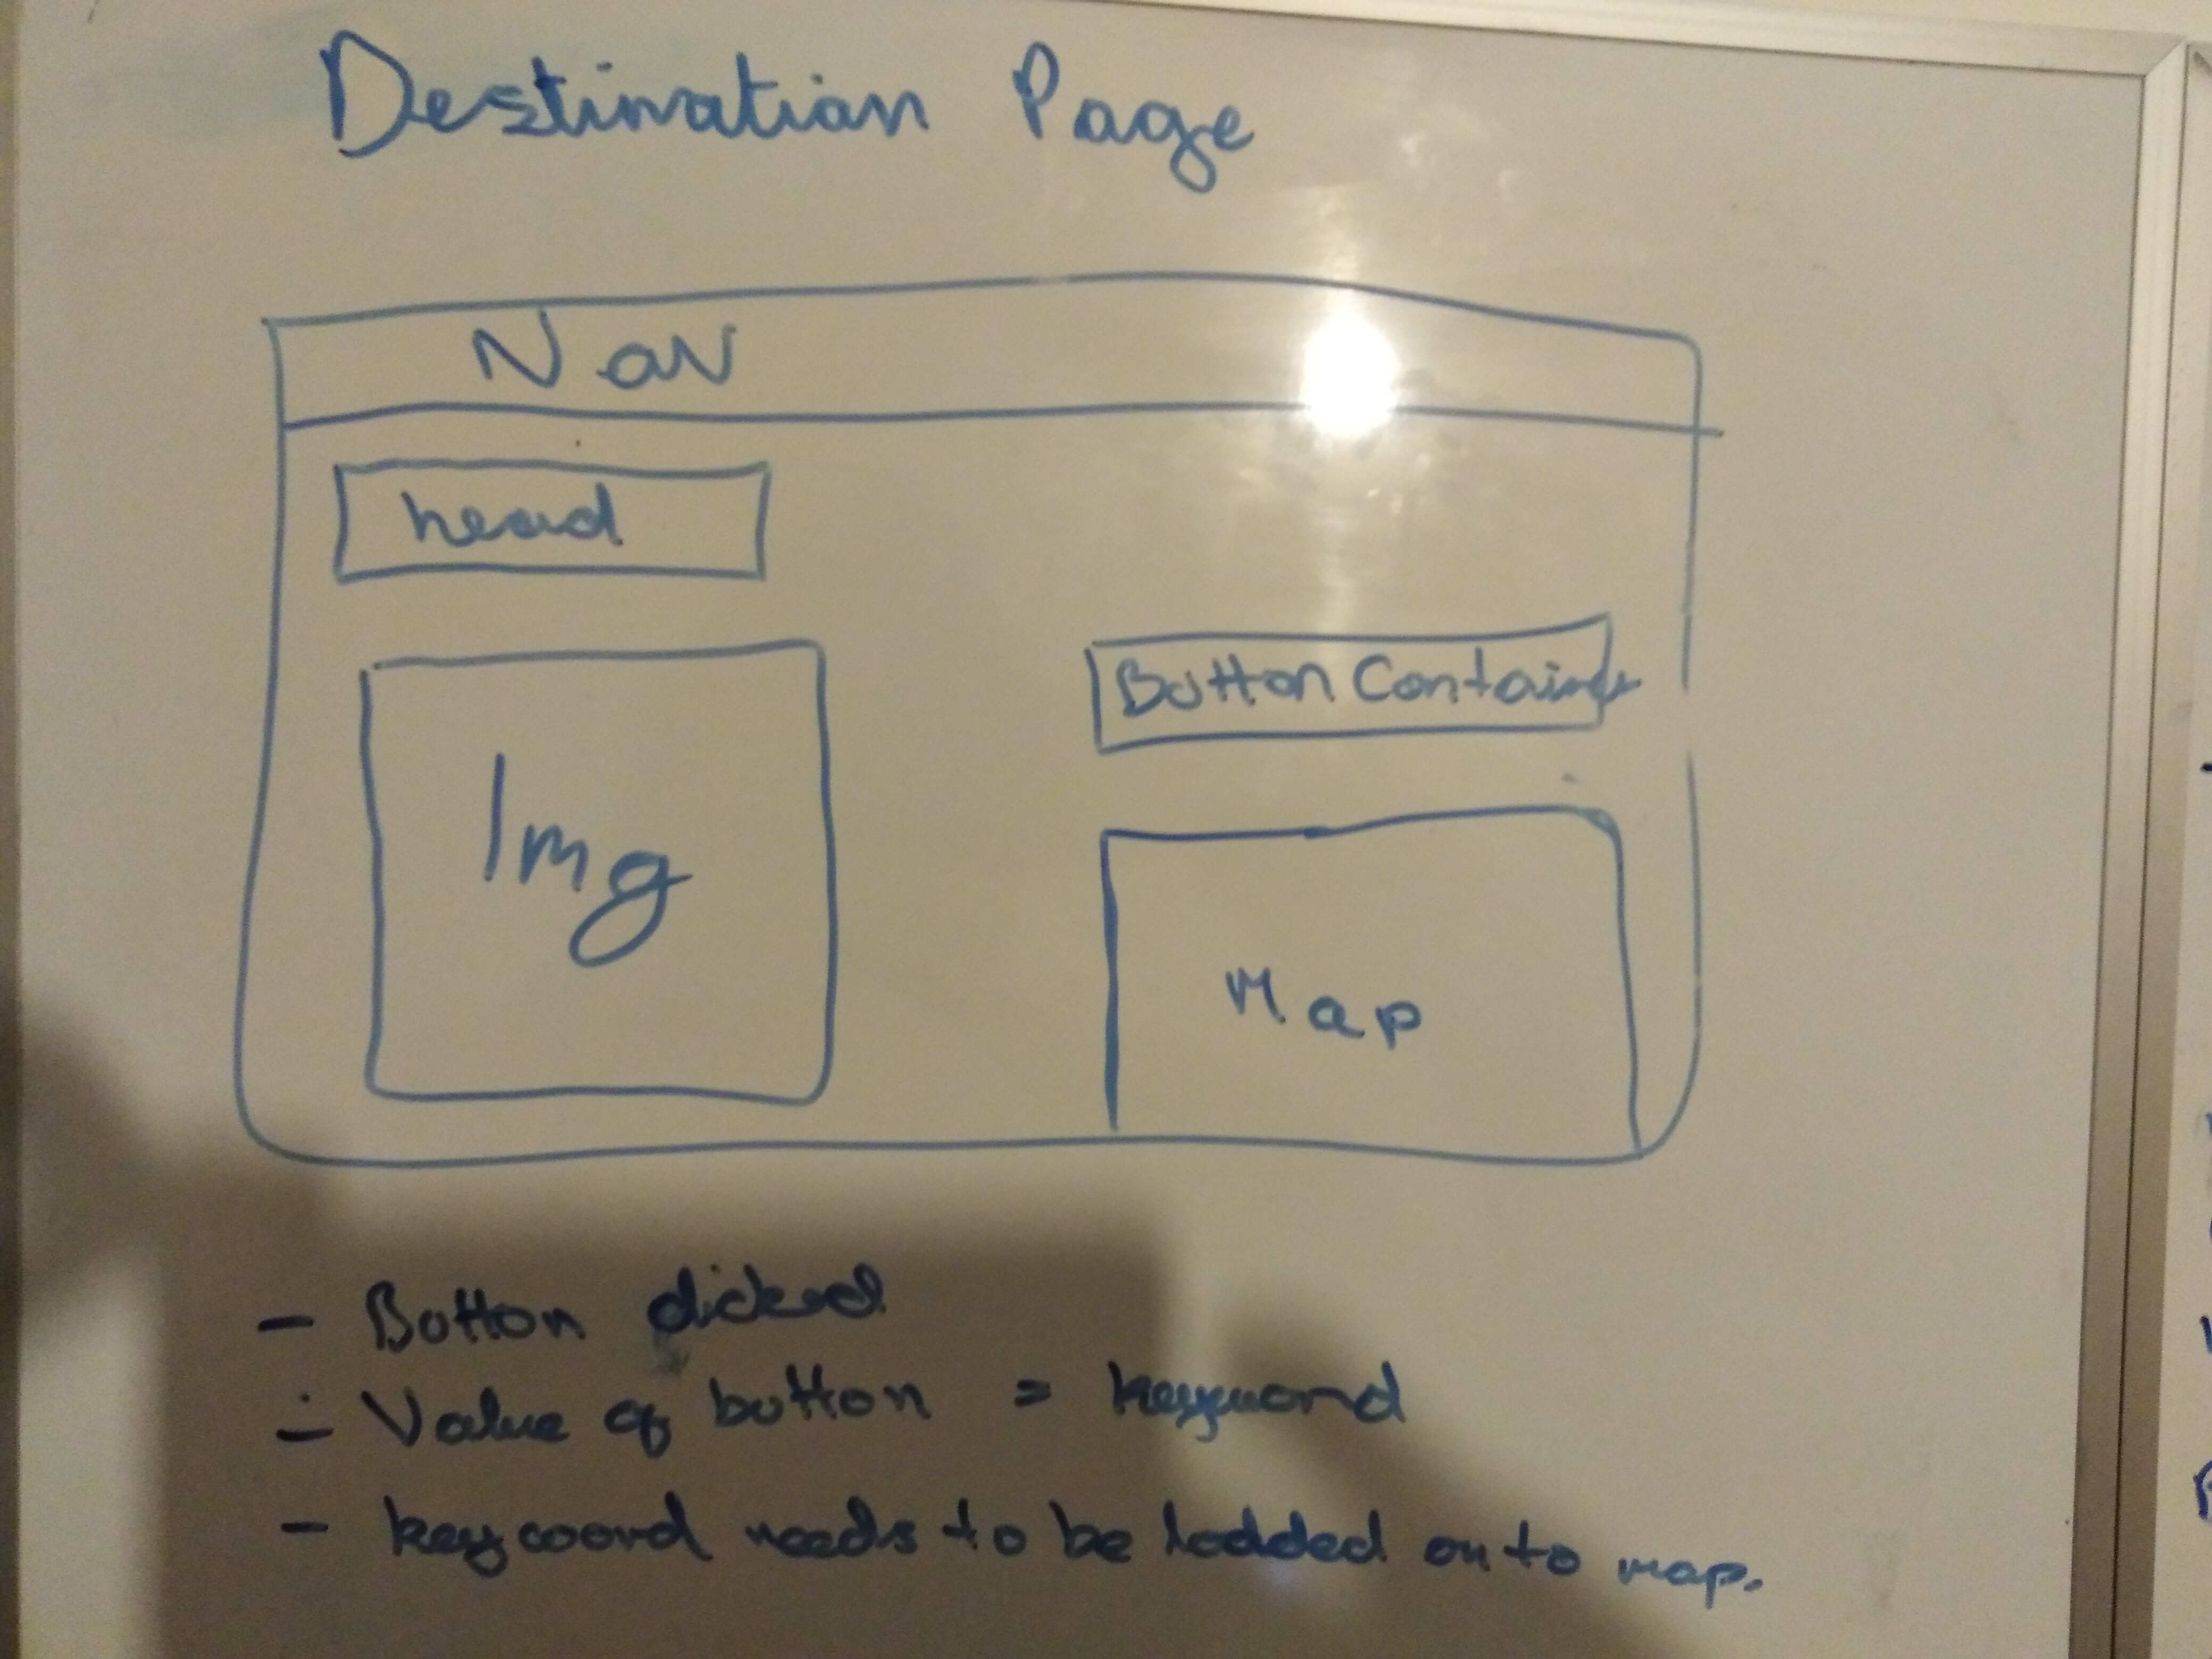 Destination Page
Nav
head
Button Container
Img
Map
- Button clicked
- Value of button = keyword
- keyword needs to be lodded onto map.